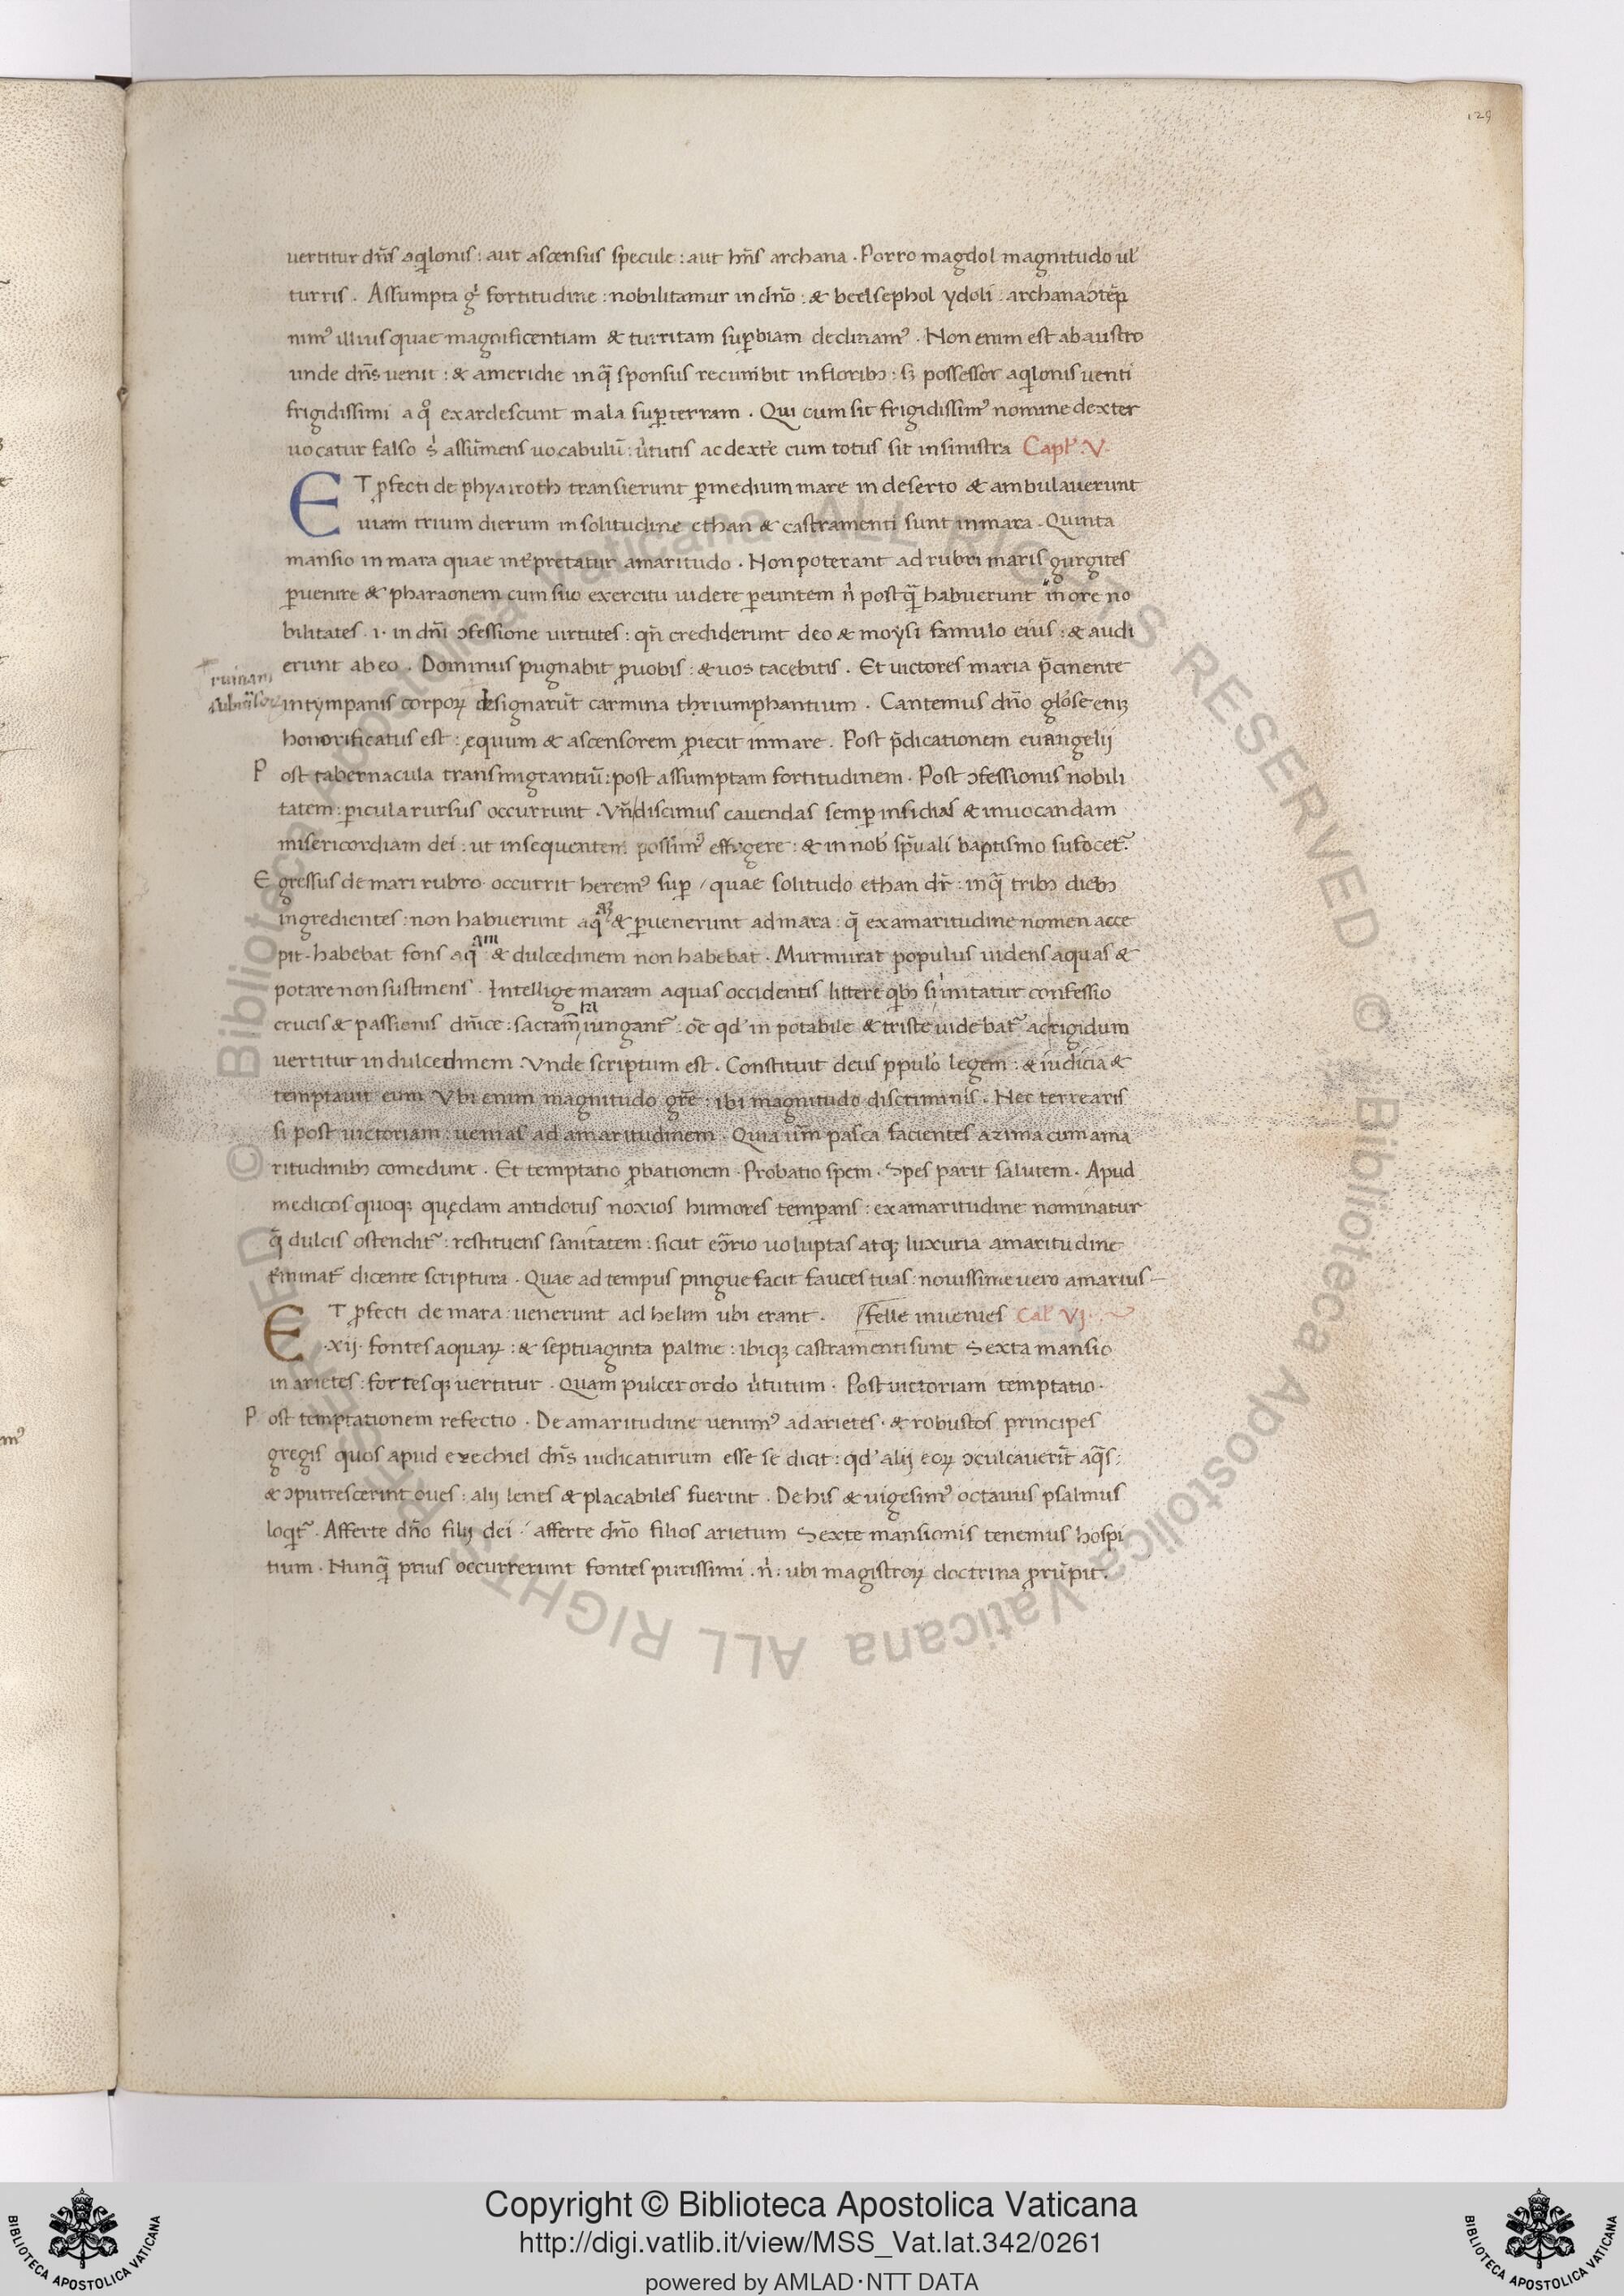 129
vertitur dn̄s aq̇lonis : aut ascensus specule : aut hn̄s archana . Porro magdol magnitudo ul'
turris . Assumpta gͥ fortitudine : nobilitamur in dn̄o : & beelsephol ydoli : archana ↄtēp
nimꝰ illius quae magnificentiam & turritam suꝑbiam declinamꝰ . Non enim est ab austro
unde dn̄s venit : & a meridie in q̄ sponsus recumbit in florib; : sꝫ possessor aq̇lonis venti
frigidissimi a qͦ exardescunt mala suꝑ terram . Qui cum sit frigidissimꝰ nomine dexter
vocatur falso sͥ assūmens vocabulū : ůtutis ac dext̄e cum totus sit in sinistra Captꝰ . V .
ET ꝓfecti de phyairoth transierunt ꝑ medium mare in deserto & ambulauerunt
uiam trium dierum in solitudine ethan & castramenti sunt in mara . Quinta
mansio in mara quae int̄pretatur amaritudo . Non poterant ad rubri maris gurgites
ꝑuenire & pharaonem cum suo exercitu uidere ꝑeuntem nͥ postq̄ habuerunt in ore no
bilitates .i. in dn̄i ↄfessione uirtutes : qn̄ crediderunt deo & moysi famulo eius : & audi
erunt ab eo . Dominus pugnabit ꝓ uobis : & uos tacebitis . Et uictores maria p̄cinente
ruinam
in tympanis corpoꝝ designarūt carmina thriumphantium . Cantemus dn̄o glo͛se eniꝫ
honorificatus est : equum & ascensorem ꝓiecit in mare . Post p̄dicationem euangelij
Post tabernacula transmigrantiū : post assumptam fortitudinem . Post ↄfessionis nobili
tatem : ꝑicula rursus occurrunt . Vn̄ discimus cauendas semꝑ insidias & inuocandam
misericordiam dei : ut insequentem possimꝰ effugere : & in nob̄ sp̄uali baptismo sufocet᷑ .
Egressus de mari rubro occurrit heremꝰ suꝑ / quae solitudo ethan dr̄ : in q̄ trib; dieb;
ingredientes : non habuerunt aq̄ aꝫ & ꝑuenerunt ad mara : q̄ ex amaritudine nomen acce
pit . habebat fons aq̄ am & dulcedinem non habebat . Murmurat populus uidens aquas &
potare non sustinens . Intellige maram aquas occidentis littere q̇b; si inͥtatur confessio
crucis & passionis dn̄ice : sacram̄ta iungant᷑ : oē qd' in potabile & triste uidebat᷑ ac rigidum
vertitur in dulcedinem . Vnde scriptum est . Constituit deus ppulo legem : & iudicia &
temptauit eum Vbi enim magnitudo gr̄e : ibi magnitudo discriminis . Nec terrearis
si post uictoriam : uenias ad amaritudinem . Quia um̄ pasca facientes azima cum ama
ritudinib; comedunt . Et temptatio ꝓbationem . Probatio spem . Spes parit salutem . Apud
medicos quoqꝫ quędam antidotus noxios humores temꝑans : ex amaritudine nominatur
q̄ dulcis ostendit᷑ : restituens sanitatem : sicut eↄ̄rio uoluptas atqꝫ luxuria amaritudine
t̄minat᷑ dicente scriptura . Quae ad tempus pingue facit fauces tuas : nouissime uero amarius
ET ꝓfecti de mara : uenerunt ad helim ubi erant . felle inuenies Cal' VJ .
.xij. fontes aquaꝝ : & septuaginta palme : ibiqꝫ castramenti sunt Sexta mansio
in arietes : fortesqꝫ vertitur . Quam pulcer ordo ůtutum . Post uictoriam temptatio .
Post temptationem refectio . De amaritudine uenimꝰ ad arietes . & robustos principes
gregis quos apud ezechiel dn̄s iudicaturum esse se dicit : qd' alij eoꝝ ↄculcauerīt aq̄s :
& ↄputrescerint oues : alij lenes & placabiles fuerint . De his & uigesimꝰ octauus psalmus
loqt᷑ . Afferte dn̄o filij dei : afferte dn̄o filios arietum Sexte mansionis tenemus hospi
tium . Nunq̄ prius occurrerunt fontes purissimi . nͥ : ubi magistroꝝ doctrina ꝓrūpit .
© Biblioteca Apostolica Vaticana ALL RIGHTS RESERVED © Biblioteca Apostolica Vaticana ALL RIGHTS RESERVED
Copyright © Biblioteca Apostolica Vaticana
http://digi.vatlib.it/view/MSS_Vat.lat.342/0261
powered by AMLAD·NTT DATA
BIBLIOTECA APOSTOLICA VATICANA
BIBLIOTECA APOSTOLICA VATICANA